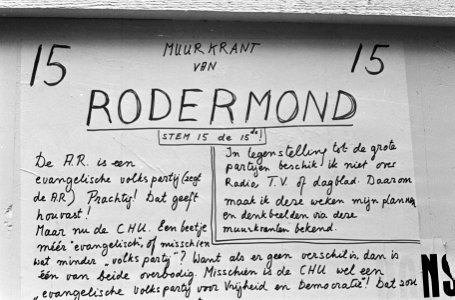 15
MUURKRANT
VAN
15
RODERMOND
STEM 15 de 15de!
De A.R. is een
evangelische volkspartij (zegt
de AR) Prachtig! Dat geeft
houvast!
Maar nu de CHU. Een beetje
méér "evangelisch" of misschien
wat minder "volkspartij"? Want als er geen verschil is, dan is
één van beide overbodig. Misschien is de CHU wel een
"evangelische volkspartij voor Vrijheid en Democratie"! Dat zou
In tegenstelling tot de grote
partijen beschik ik niet over
Radio T.V. of dagblad. Daarom
maak ik deze weken mijn plannen
en denkbeelden via deze
muurkranten bekend.
NS